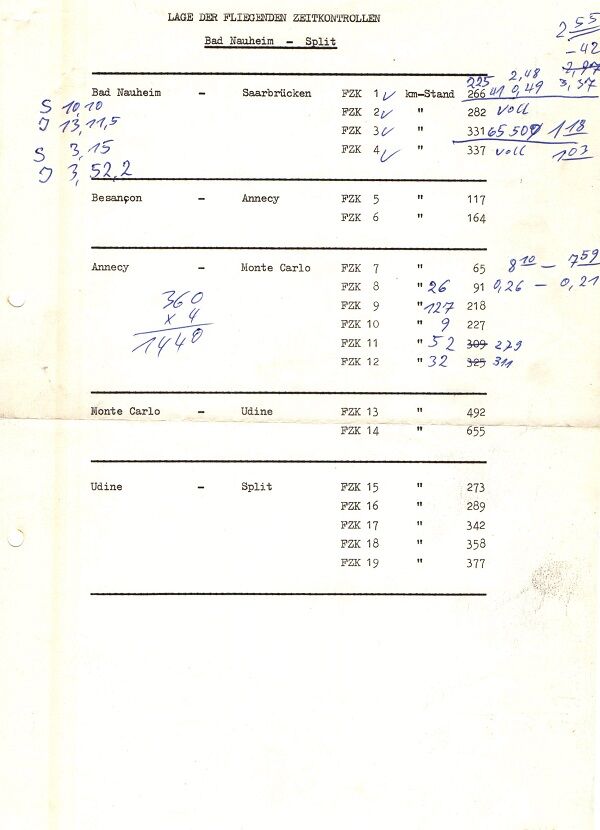 LAGE DER FLIEGENDEN ZEITKONTROLLEN
Bad Nauheim - Split
2 55
- 42
3,37
225 2,48
Bad Nauheim - Saarbrücken FZK 1 ✓ km-Stand 266 41 0,49
S 10,10
FZK 2 ✓ " 282 voll
J 13,11,5
FZK 3 ✓ " 331 65 507 1 18
S 3,15
FZK 4 ✓ " 337 voll 1 03
J 3,52,2
Besançon - Annecy FZK 5 " 117
FZK 6 " 164
Annecy - Monte Carlo FZK 7 " 65 8 10 - 7 59
FZK 8 " 26 91 0,26 - 0,21
360
FZK 9 " 127 218
x 4
FZK 10 " 9 227
1440
FZK 11 " 52 309 279
FZK 12 " 32 325 311
Monte Carlo - Udine FZK 13 " 492
FZK 14 " 655
Udine - Split FZK 15 " 273
FZK 16 " 289
FZK 17 " 342
FZK 18 " 358
FZK 19 " 377